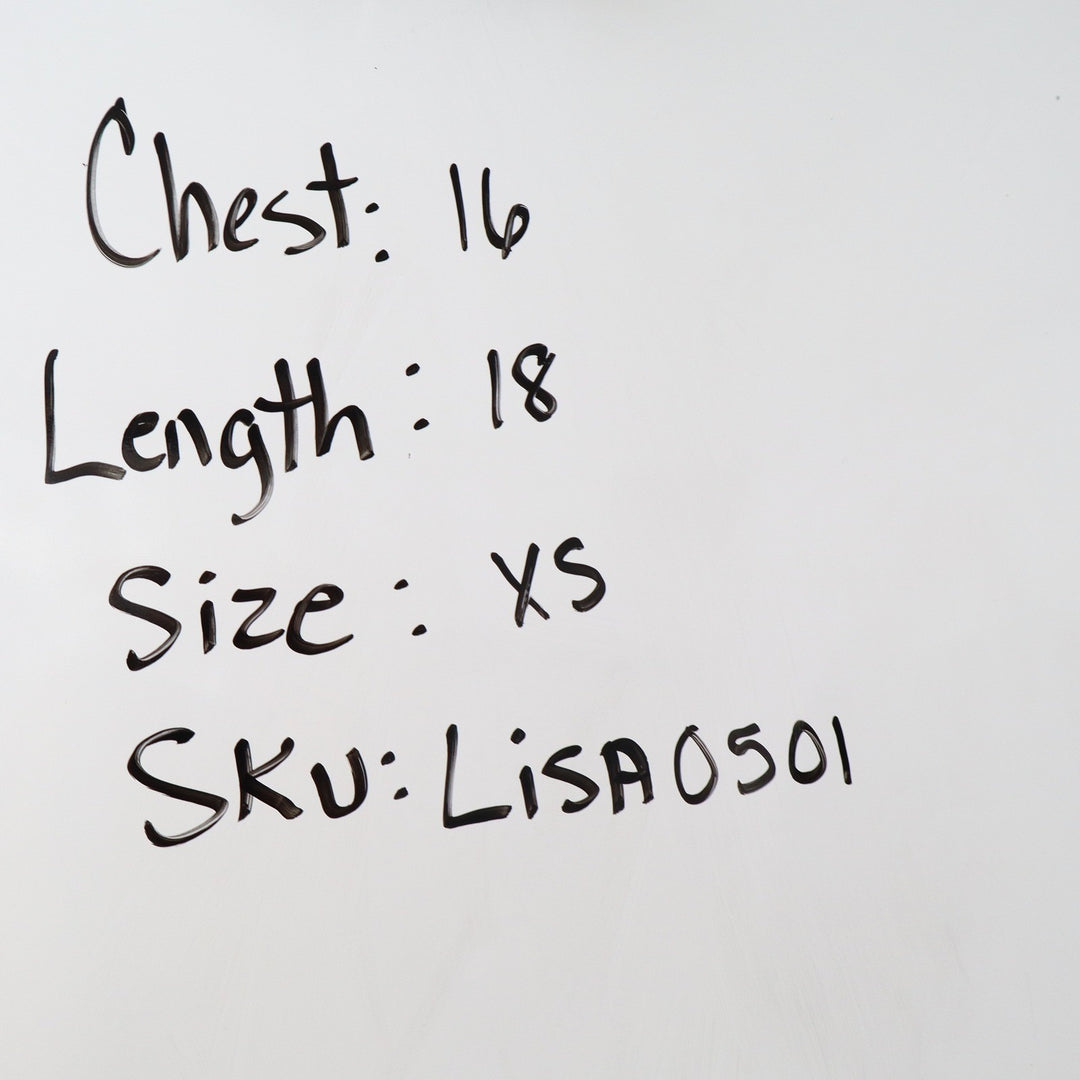 Chest: 16
Length: 18
Size: XS
SKU: LiSA0501